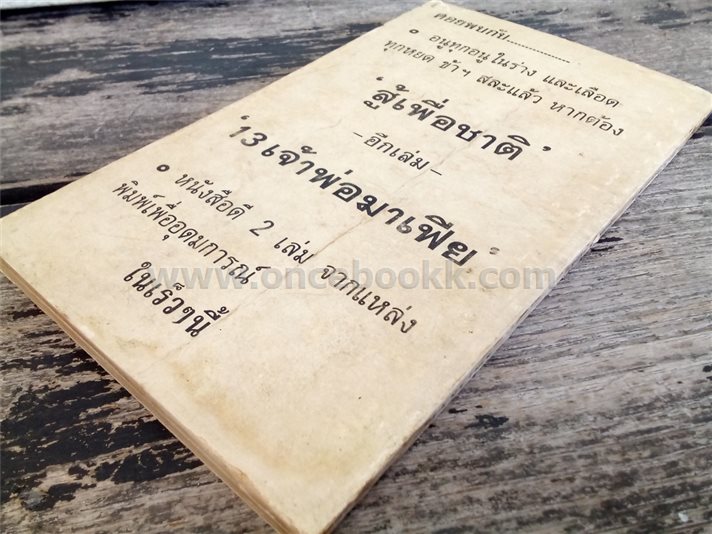 คอยพบกับ................
• อนูทุกอนูในร่าง และเลือด
ทุกหยด ข้าฯ สละแล้ว หากต้อง
'สู้เพื่อชาติ'
-อีกเล่ม-
'13 เจ้าพ่อมาเฟีย'
• หนังสือดี 2 เล่ม จากแหล่ง
พิมพ์เพื่ออุดมการณ์
ในเร็วๆนี้
www.oncebookk.com